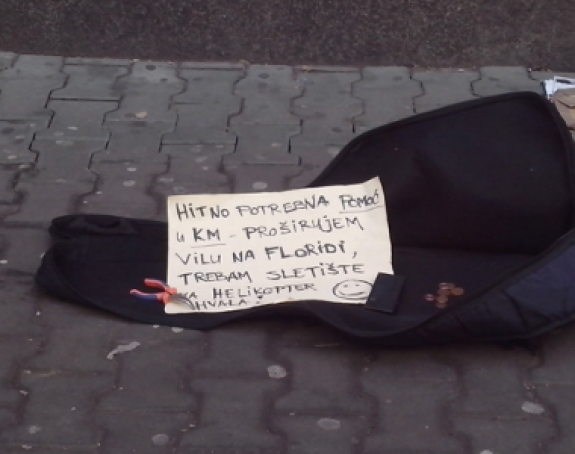 HITNO POTREBNA POMOĆ
u KM - PROŠIRUJEM
VILU NA FLORIDI,
TREBAM SLETIŠTE
ZA HELIKOPTER
HVALA!